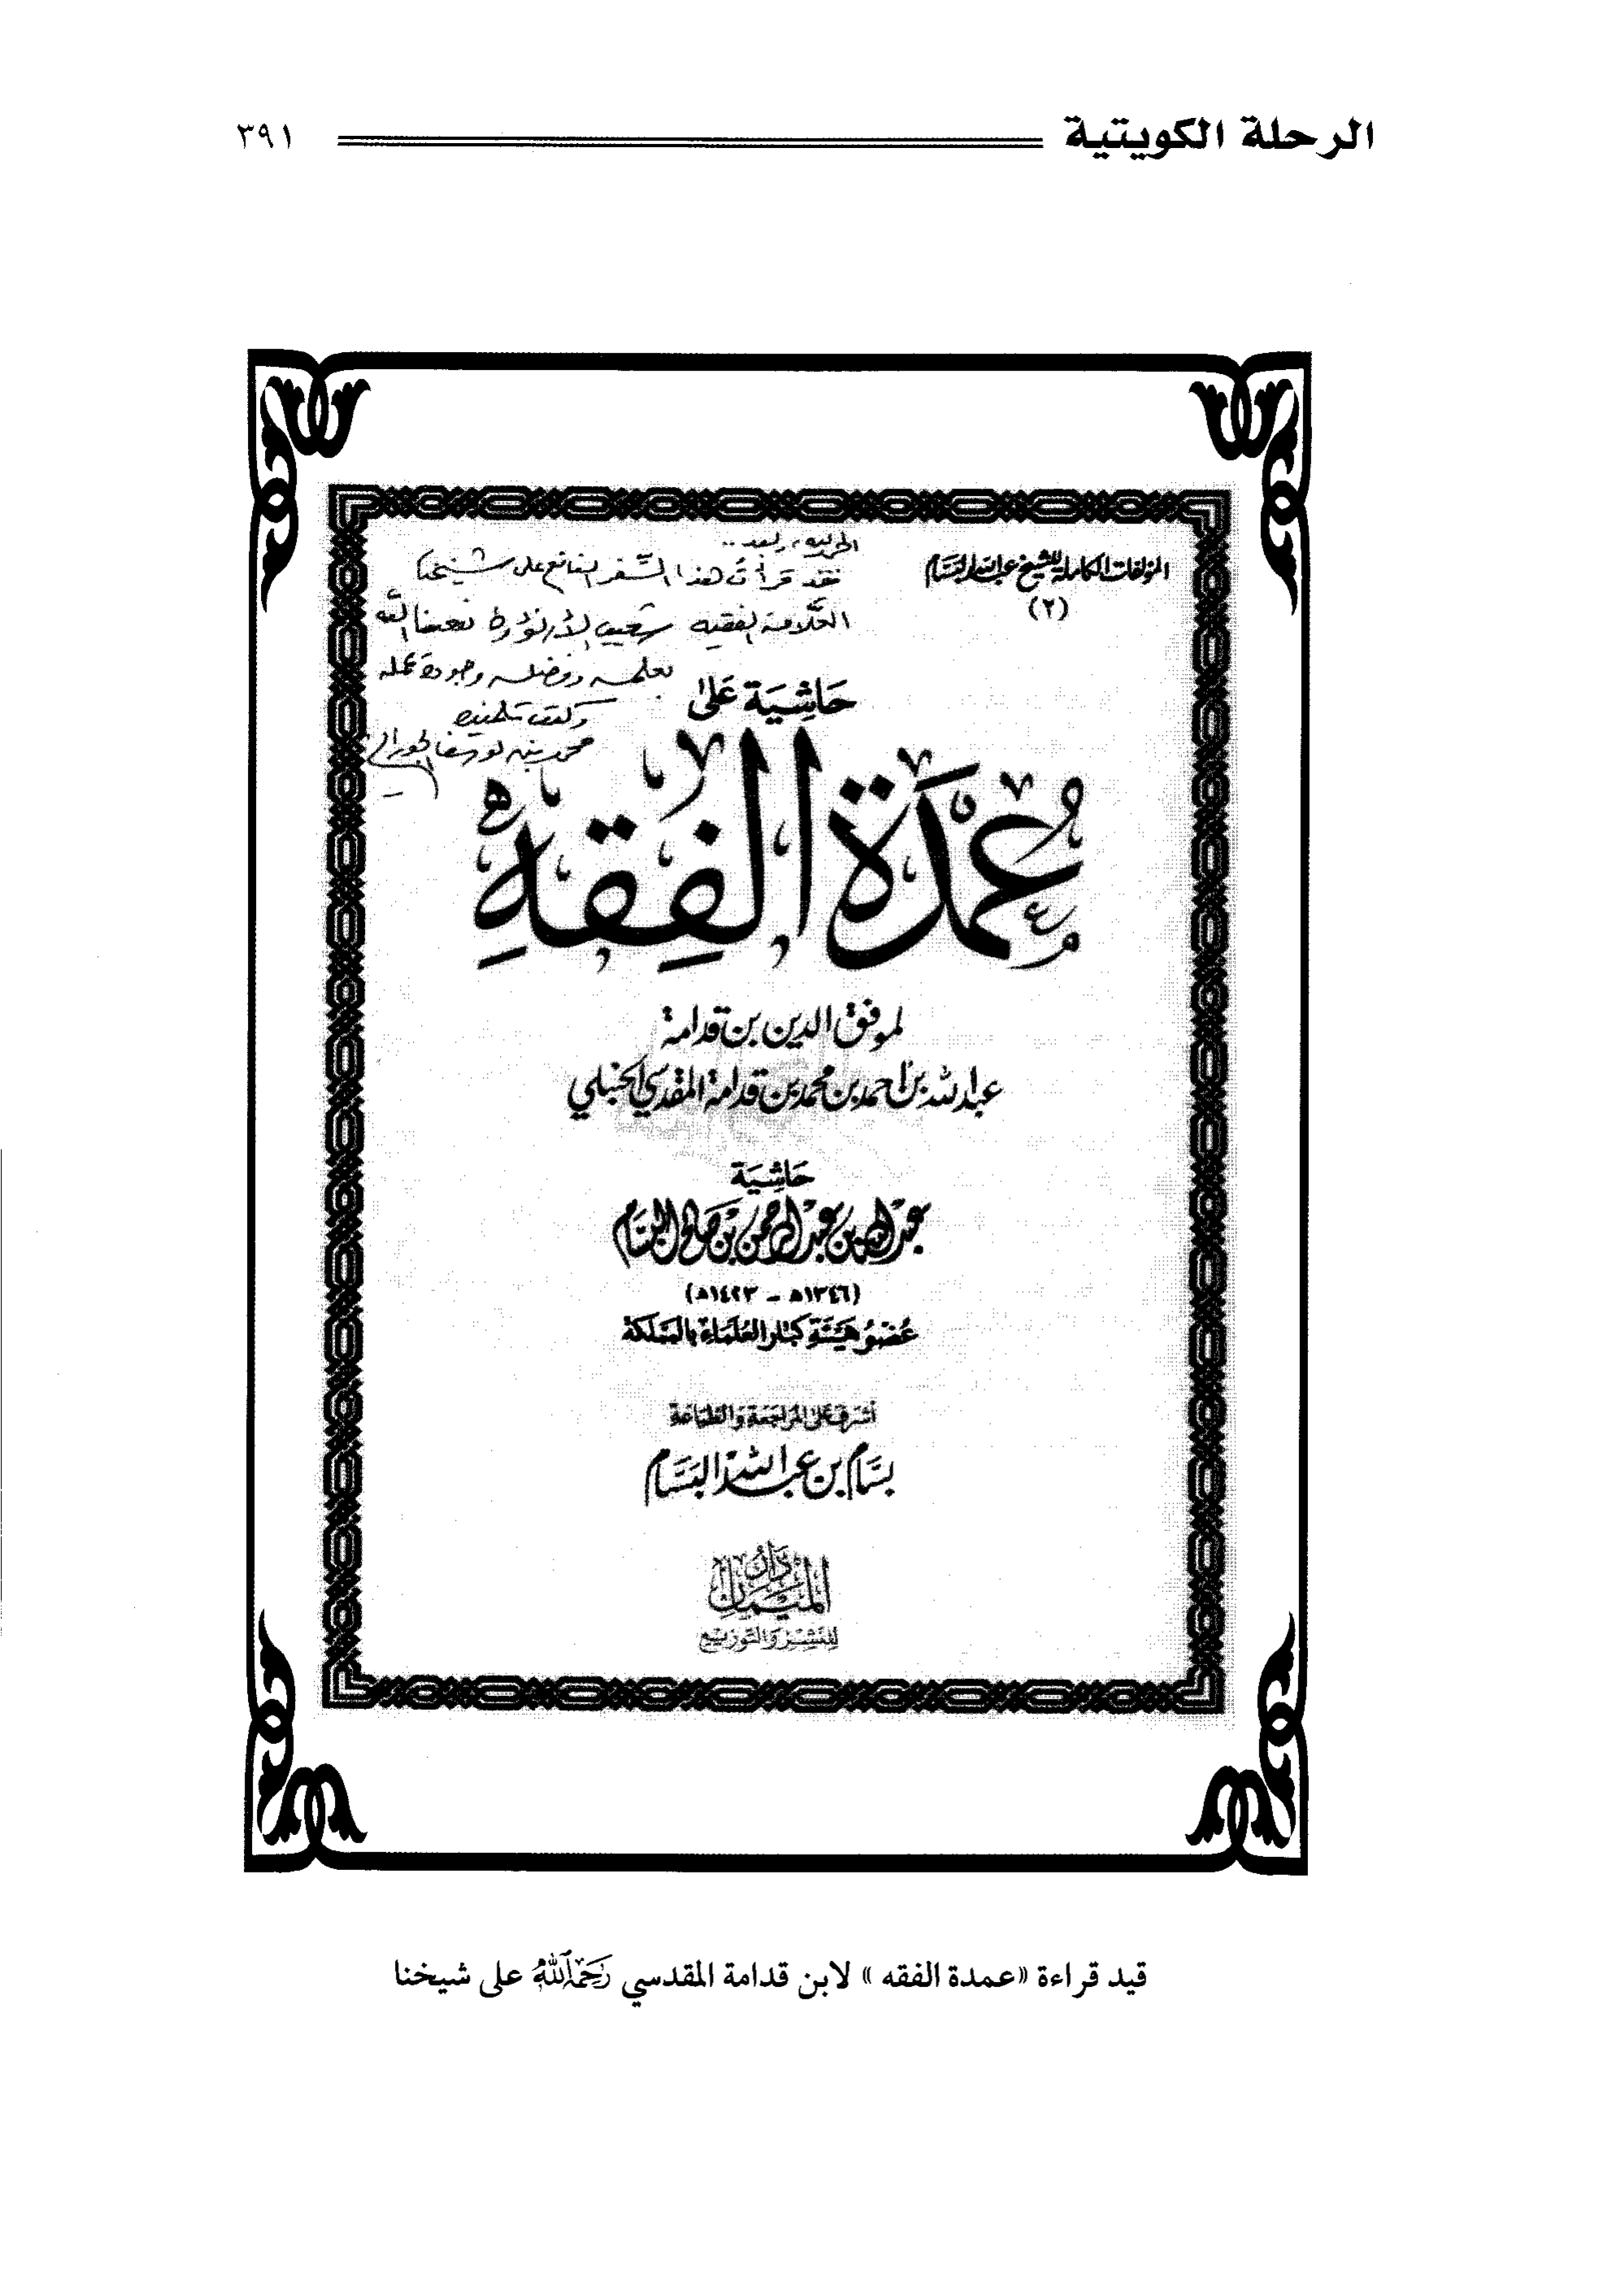 الرحلة الكويتية ٣٩١
المؤلفات الكاملة للشيخ عبدالله البسام
(٢)
الحمد لله، وبعد..
فقد قرأت هذا السفر النافع على شيخنا
العلامة الفقيه شعيب الأرنؤوط نفعنا الله
بعلمه وفضله وجودة عمله
وكتب تلميذه
محمد بن يوسف الجوراني
حَاشِيَة عَلَىٰ
عُمدَة الفِقهِ
لموفق الدين بن قدامة
عبدالله بن أحمد بن محمد بن قدامة المقدسي الحنبلي
حَاشِيَة
عبدالله بن عبدالرحمن بن صالح البسام
(١٣٤٦هـ - ١٤٢٣هـ)
عُضو هَيئَةِ كِبَار العُلمَاء بالمملكة
أشرف على المراجعة والطباعة
بسَّام بن عبدالله البسَّام
دَار الميمَان
للنشر والتوزيع
قيد قراءة «عمدة الفقه» لابن قدامة المقدسي رَحِمَهُ اللَّهُ على شيخنا